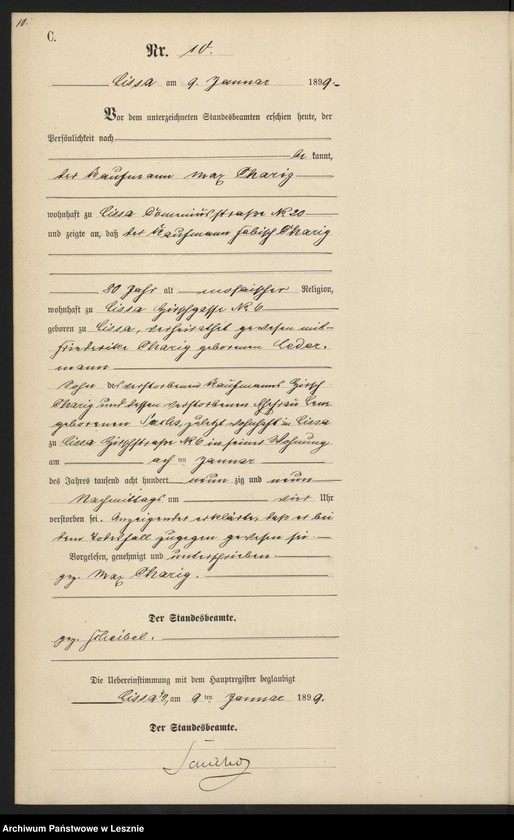 10.
C.
Nr. 10.
Lissa am 9. Januar 1899.
Vor dem unterzeichneten Standesbeamten erschien heute, der
Persönlichkeit nach
be kannt,
der Kaufmann Max Tharig
wohnhaft zu Lissa Dominiustraße No 20
und zeigte an, daß der Kaufmann Fabisch Tharig
80 Jahr alt mosaischer Religion,
wohnhaft zu Lissa Hirschgasse No 6
geboren zu Lissa, verheirathet gewesen mit
Friederike Tharig geborenen Leder-
mann
Sohn des verstorbenen Kaufmanns Hirsch
Tharig und dessen verstorbenen Ehefrau
geborenen Sachs, zuletzt wohnhaft in Lissa
zu Lissa No 6 in seiner Wohnung
am acht ten Januar
des Jahres tausend acht hundert neun zig und neun
Nachmittags um vier Uhr
verstorben sei. Anzeigender erklärte, daß er bei
dem Todesfall zugegen gewesen sei
Vorgelesen, genehmigt und unterschrieben
gez. Max Tharig.
Der Standesbeamte.
gez. Scheibel.
Die Uebereinstimmung mit dem Hauptregister beglaubigt
Lissa am 9 ten Januar 1899.
Der Standesbeamte.
Archiwum Państwowe w Lesznie